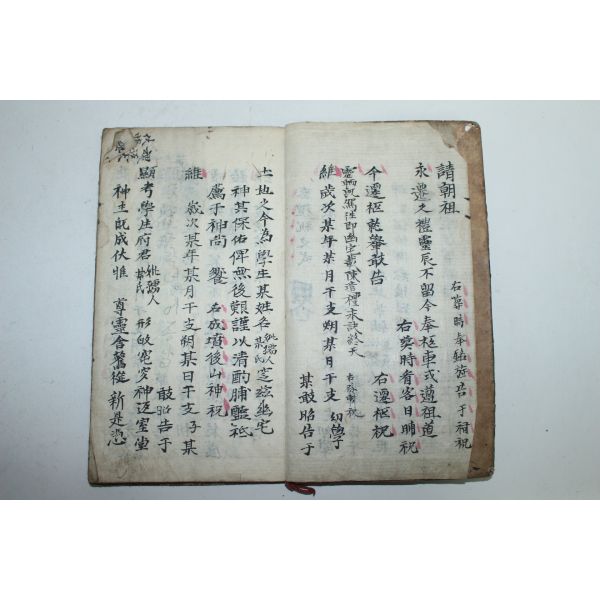 請朝祖
右葬時奉
告于祠祝
永遷之禮靈辰不留今奉柩車式遵祖道
右葬時有客日晡祝
今遷柩就轝敢告
右遷柩祝
靈輀旣駕往卽幽宅載陳遣禮永訣終天
維歲次某年某月干支朔某日干支 幼學
某敢昭告于
土地之今爲學生某姓名 窆玆幽宅
神其保佑俾無後艱謹以淸酌脯醢祗
薦于神尙饗
右成墳後山神祝
維 歲次某年某月干支朔某日干支 子某
敢昭告于
顯考學生府君 形歸窀穸神返室堂
神主旣成伏惟 尊靈舍舊從新是憑